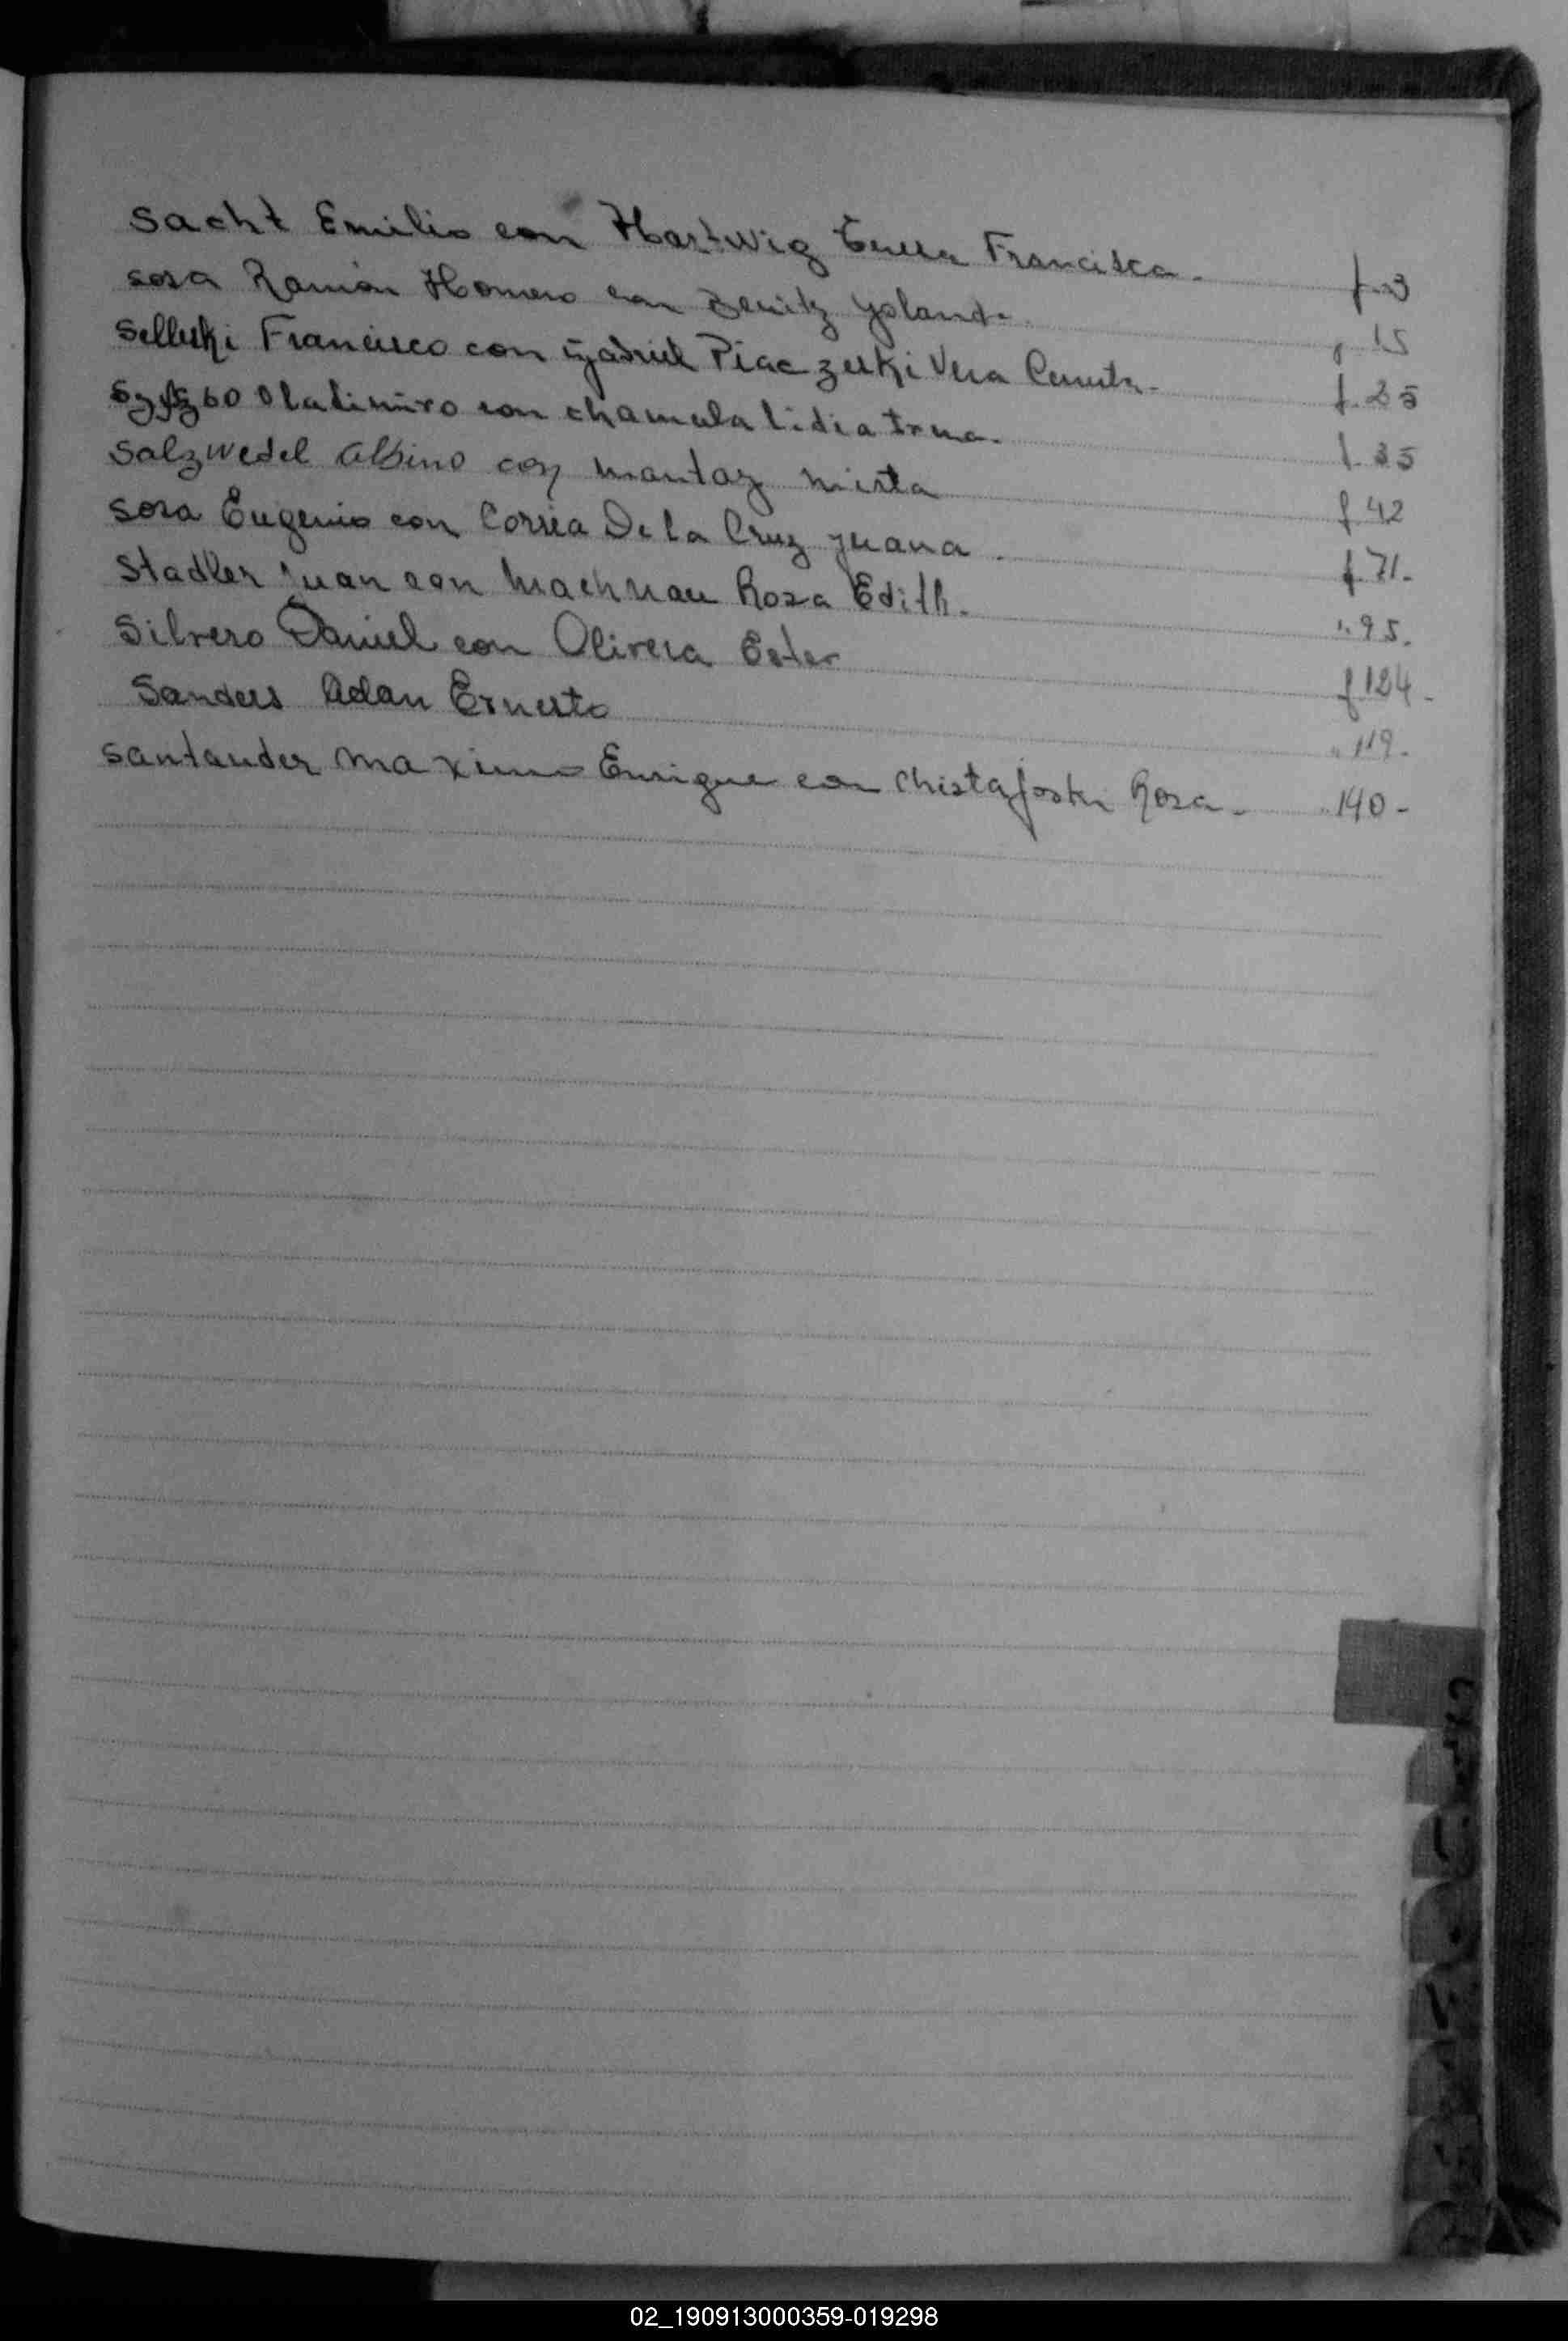 Sacht Emilio con Hartwig Francisca. f. 3
Sosa Ramón Homero con Benitz Yolanda. " 15
Selluki Francisco con Gabriel Piaczeski Vera f. 25
Oladimiro con Chamula Lidia Irma. f. 35
Salzwedel Albino con Mantay Mirta f 42
Sosa Eugenio con Correa De la Cruz Juana. f. 71.
Stadler Juan con Rosa Edith. ". 95.
Silvero Daniel con Olivera Ester f 124.
Sanders Adan Ernesto " 119.
Santander Maximo Enrique con Rosa. " 140-
02_190913000359-019298